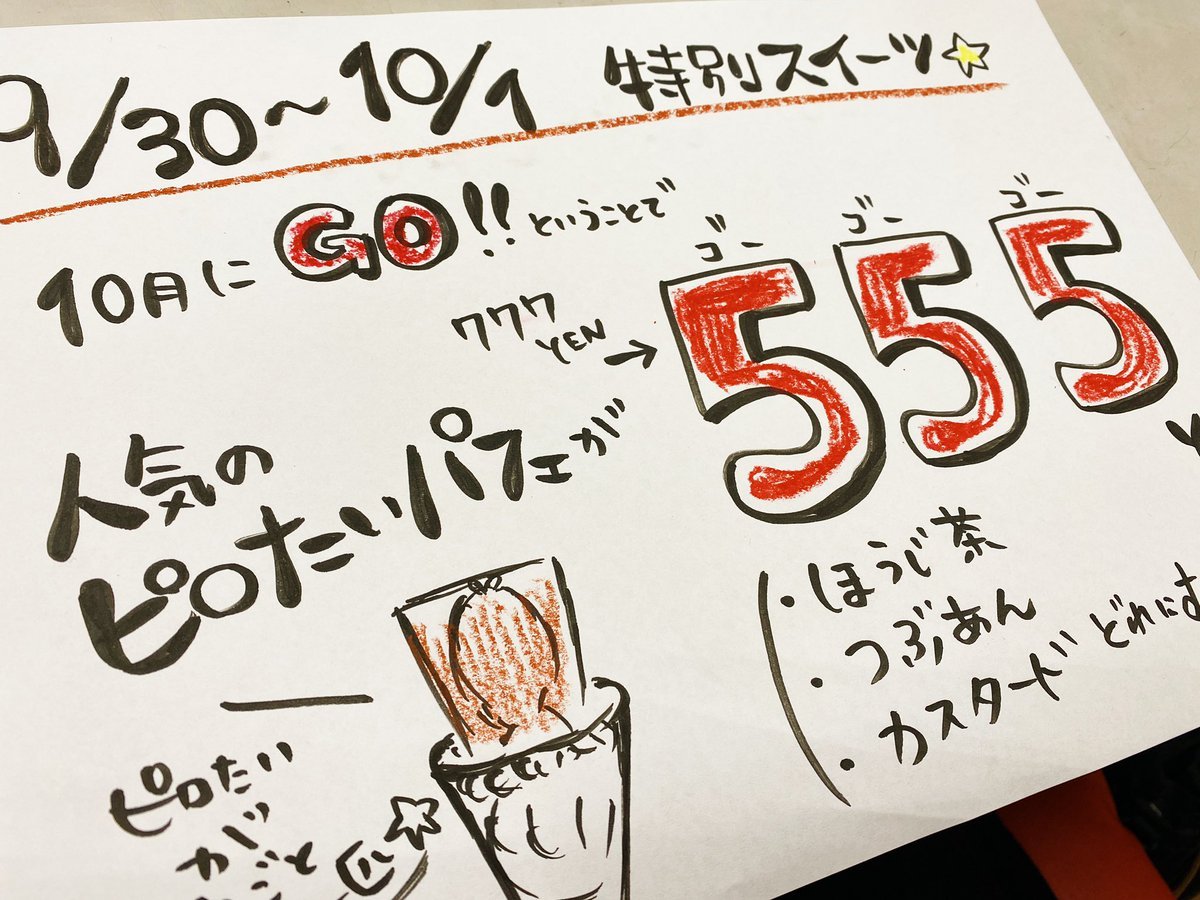 9/30〜10/1 特別スイーツ☆
10月にGO!!ということで
ゴー ゴー ゴー
777
YEN→
555
人気の
ピロたいパフェが
・ほうじ茶
つぶあん
・カスタード どれにす
ピロたい
が
ごと